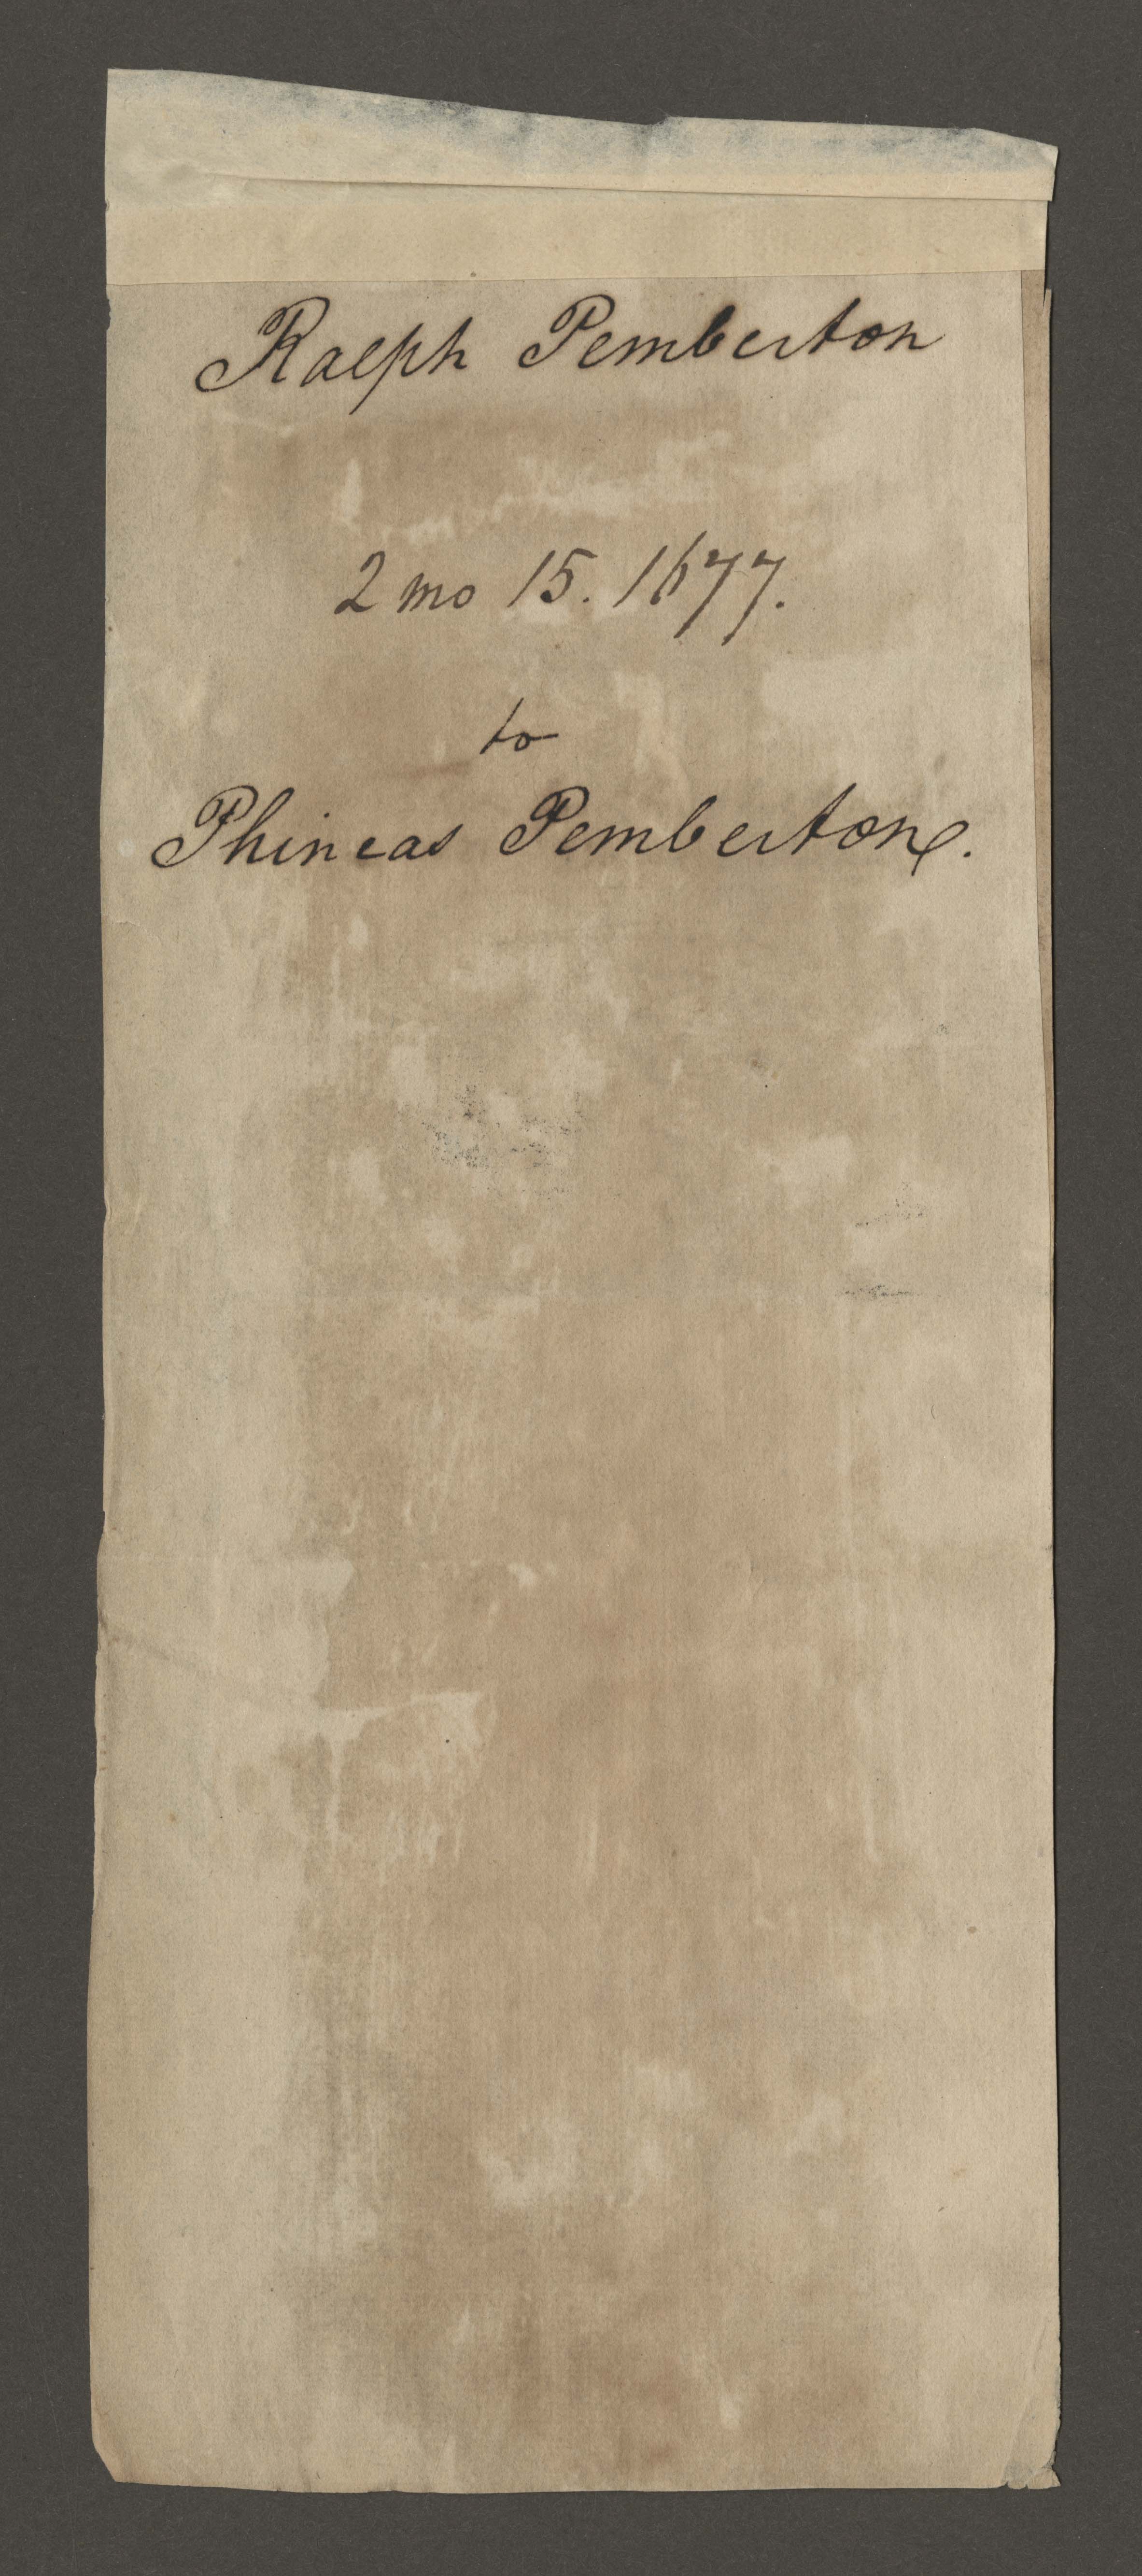 Ralph Pemberton
2 mo 15. 1677.
to
Phineas Pemberton.